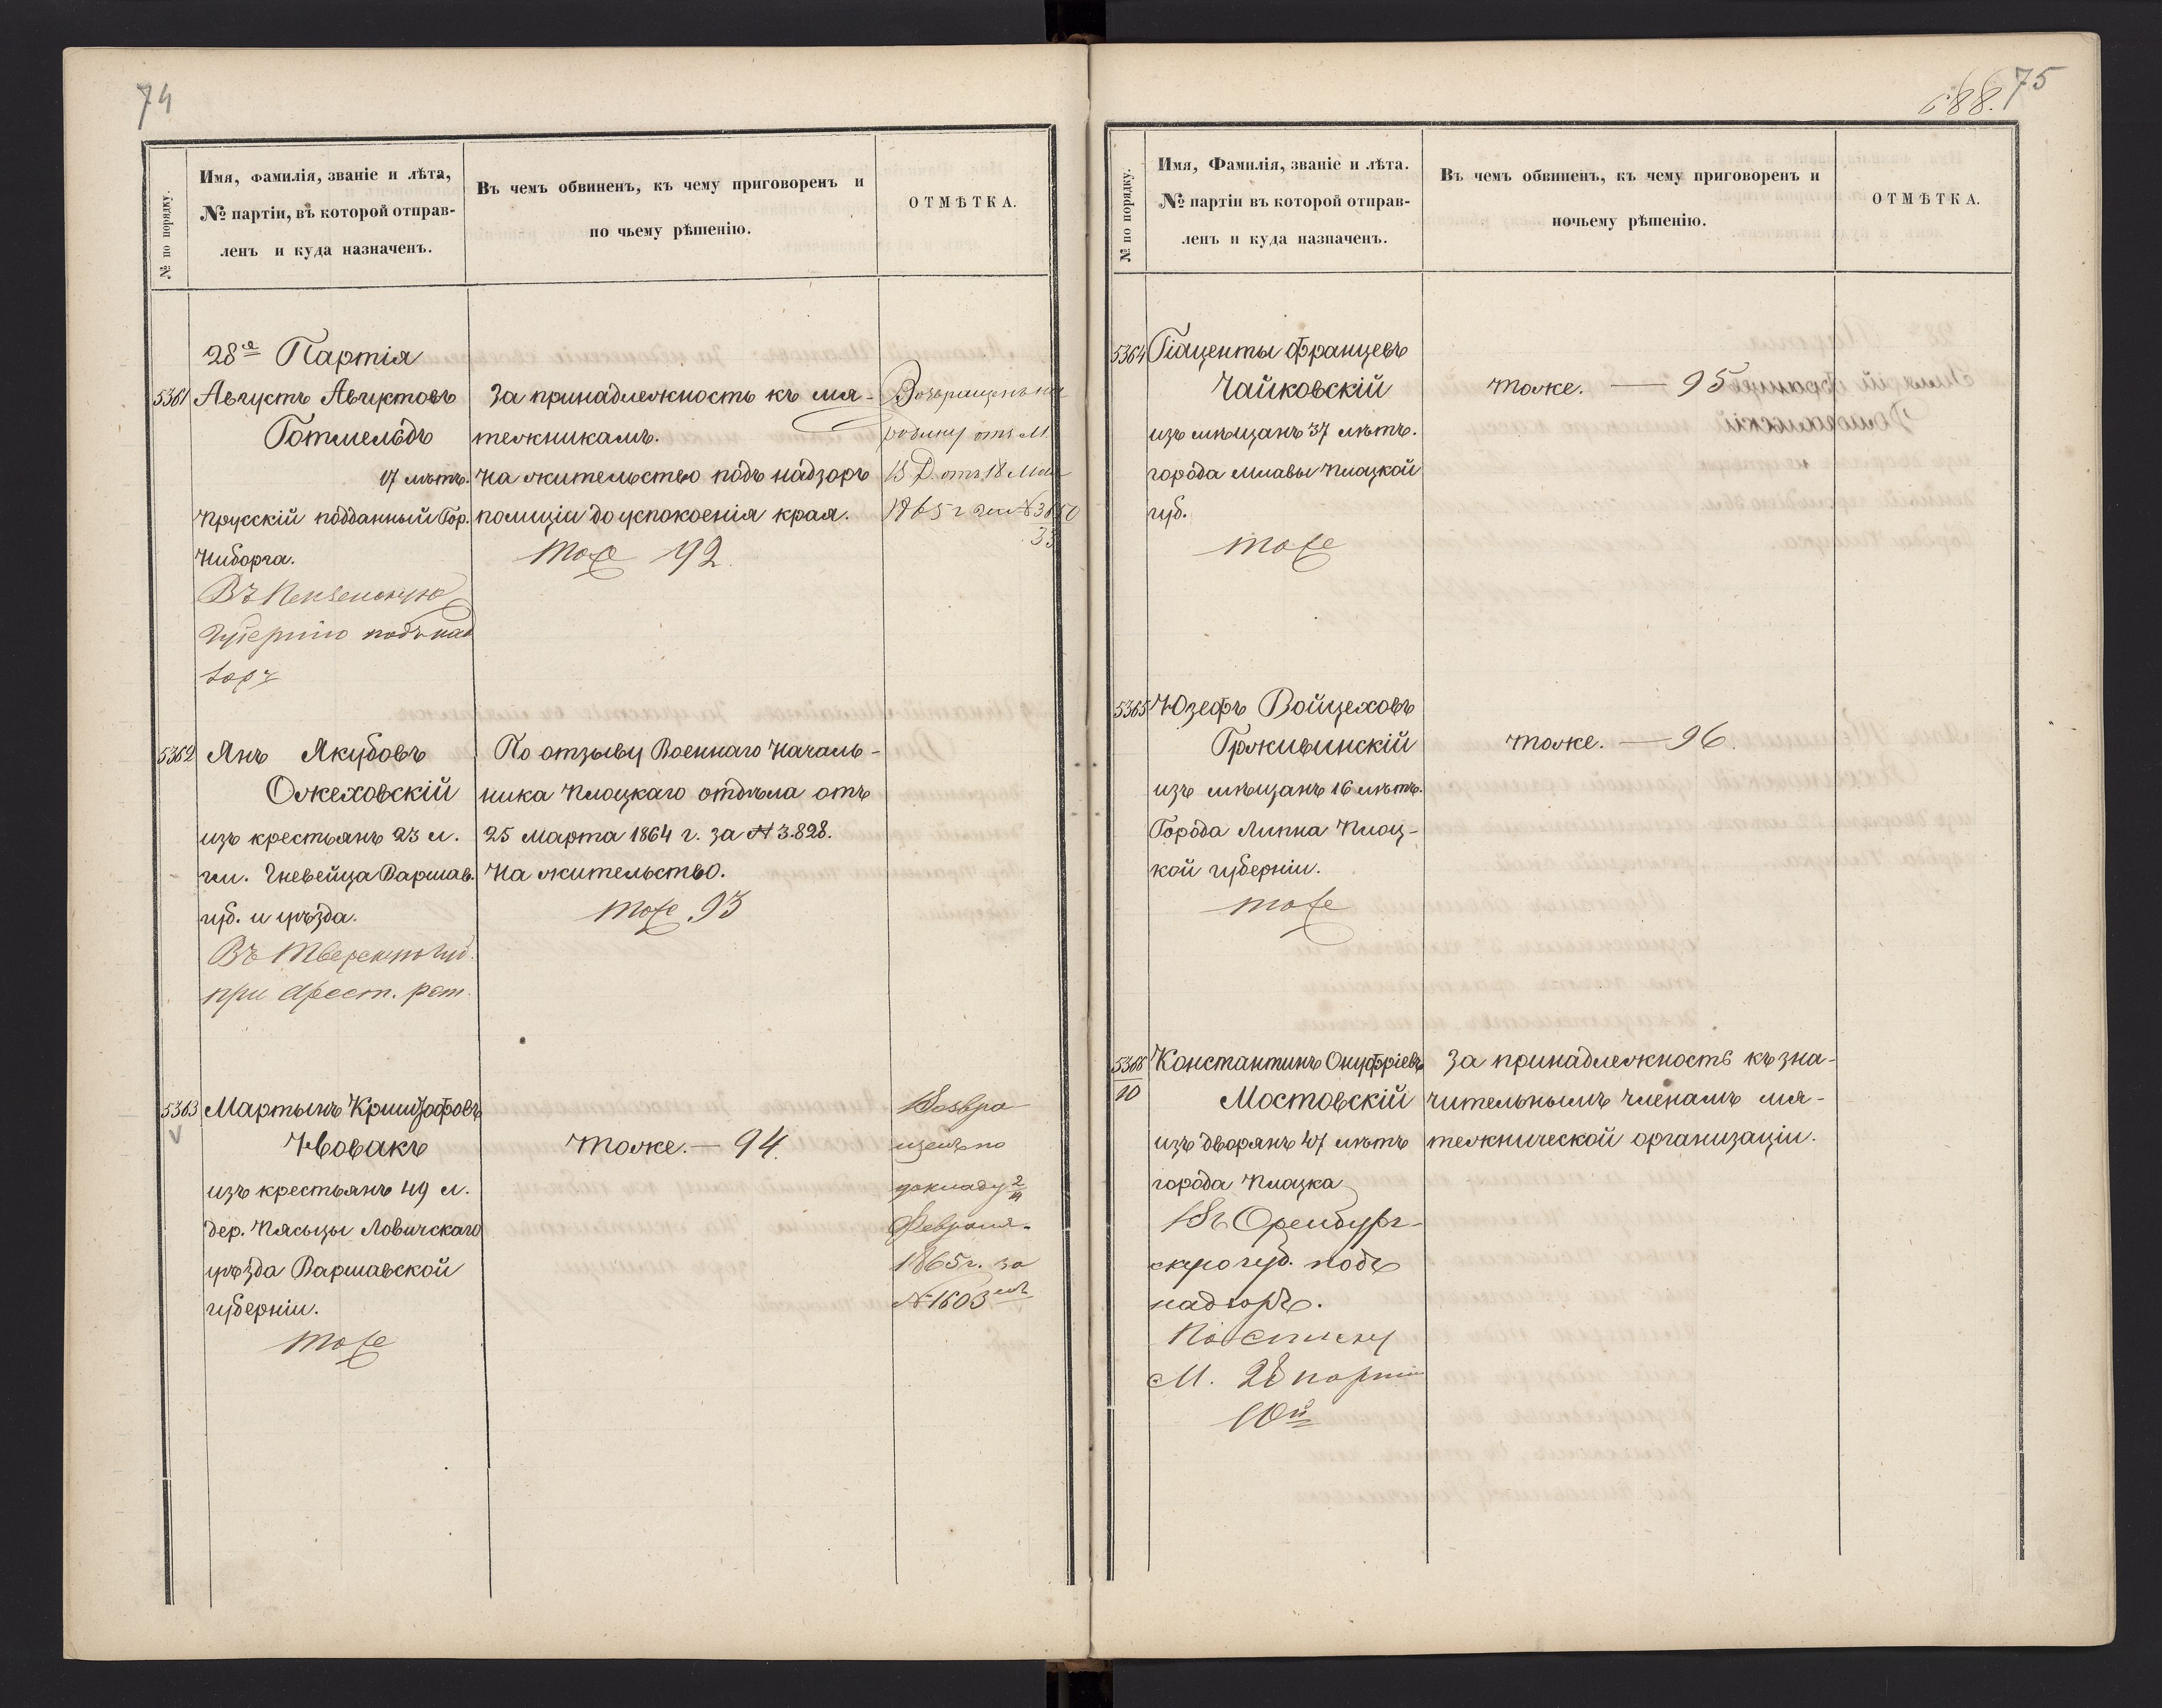 74
№ по порядку.
Имя, фамилія, званіе и лѣта,
№ партіи, въ которой отправ-
ленъ и куда назначенъ.
Въ чемъ обвиненъ, къ чему приговоренъ и
по чьему рѣшенію.
ОТМѢТКА.
28я Партія
5361 Августъ Августовъ
Готмельдъ
17 лѣтъ.
Прусскій подданный Гор.
Ниборга.
Въ Пензенскую
Губернію подъ над
зоръ
За принадлежность къ мя-
тежникамъ.
На жительство подъ надзоръ
полиціи до успокоенія края.
тоже 92.
Возвращенъ на
родину отн. М.
В Д. отъ 18 Мая
1865 г за №
33
5362 Янъ Якубовъ
Ожеховскій
изъ крестьянъ 23 л.
гм. Гневейца Варшав.
губ. и уѣзда.
Въ Тверскую губ.
при Арест. рот.
По отзыву Военнаго Началь-
ника Плоцкаго отдѣла отъ
25 Марта 1864 г. за № 3.828.
На жительство.
тоже 93
5363 Мартынъ Криштофовъ
Новакъ
изъ крестьянъ 49 л.
дер. Пясыцы Ловичскаго
уѣзда Варшавской
губерніи.
тоже
тоже. — 94.
Возвра
щенъ по
докладу 2
Февраля
1865 г. за
№ 1603
75
688.
№ по порядку.
Имя, Фамилія, званіе и лѣта.
№ партіи въ которой отправ-
ленъ и куда назначенъ.
Въ чемъ обвиненъ, къ чему приговоренъ и
почьему рѣшенію.
ОТМѢТКА.
5364 Гіаценты Францевъ
Чайковскій
изъ мѣщанъ 37 лѣтъ.
города Млавы Плоцкой
губ.
тоже
тоже. — 95
5365 Юзефъ Войцеховъ
Гржившинскій
изъ мѣщанъ 16 лѣтъ.
Города Липна Плоц-
кой губерніи.
тоже
тоже. — 96.
5366
10
Константинъ Онуфріевъ
Мостовскій
изъ дворянъ 47 лѣтъ
города Плоцка
Въ Оренбург-
скую губ. подъ
надзоръ.
По списку
М. 28 партіи
10й
За принадлежность къ зна-
чительнымъ членамъ мя-
тежнической организаціи.